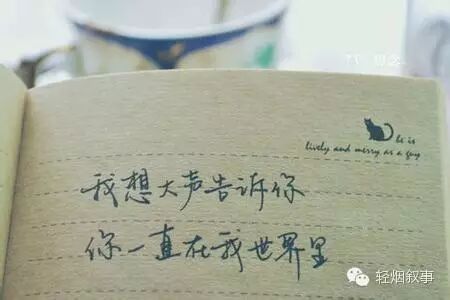 he is
lively and merry as a guy
我想大声告诉你
你一直在我世界里
轻烟叙事